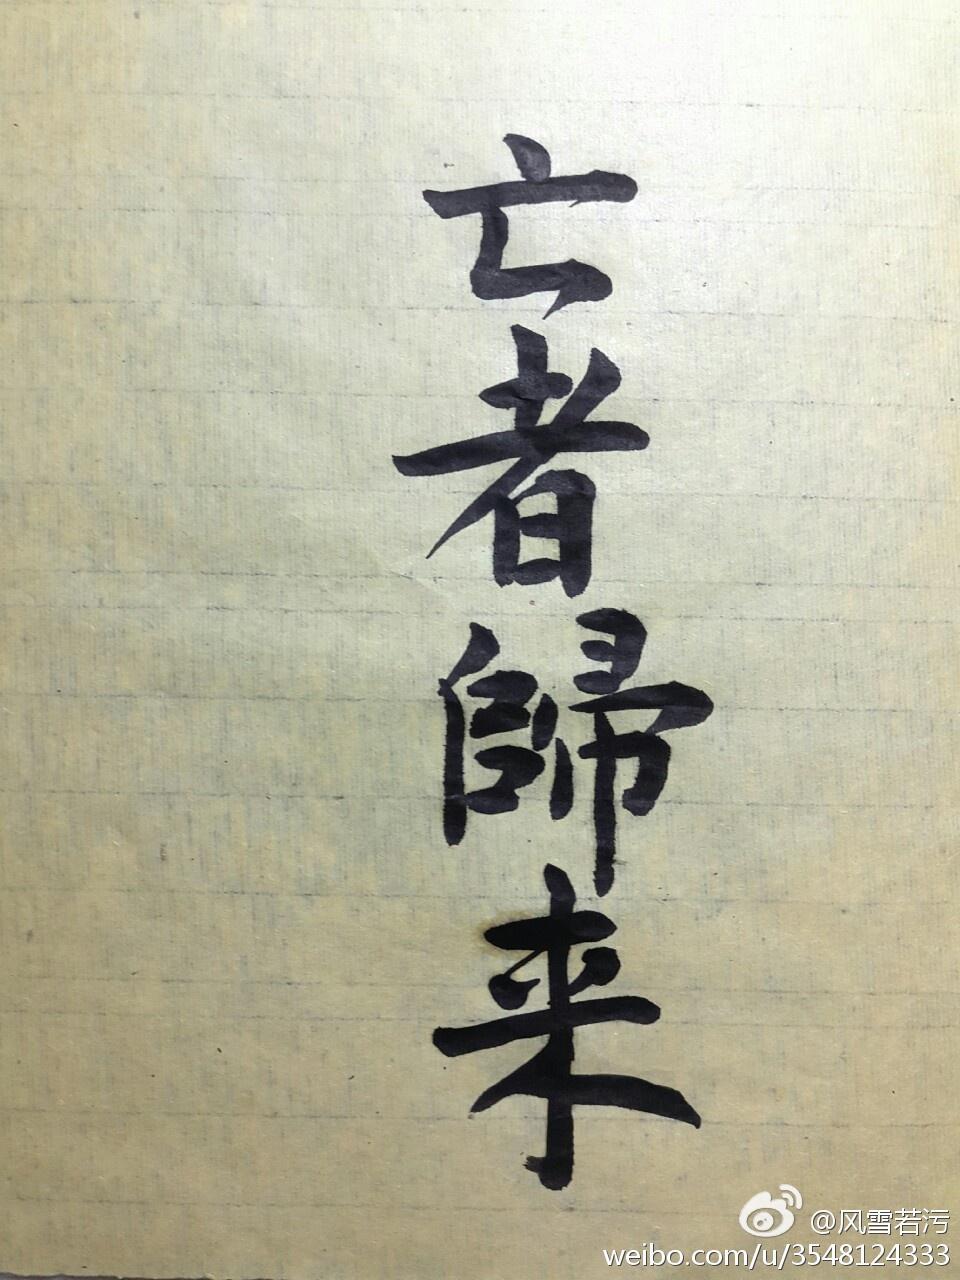 亡者歸来
@风雪若污
weibo.com/u/3548124333